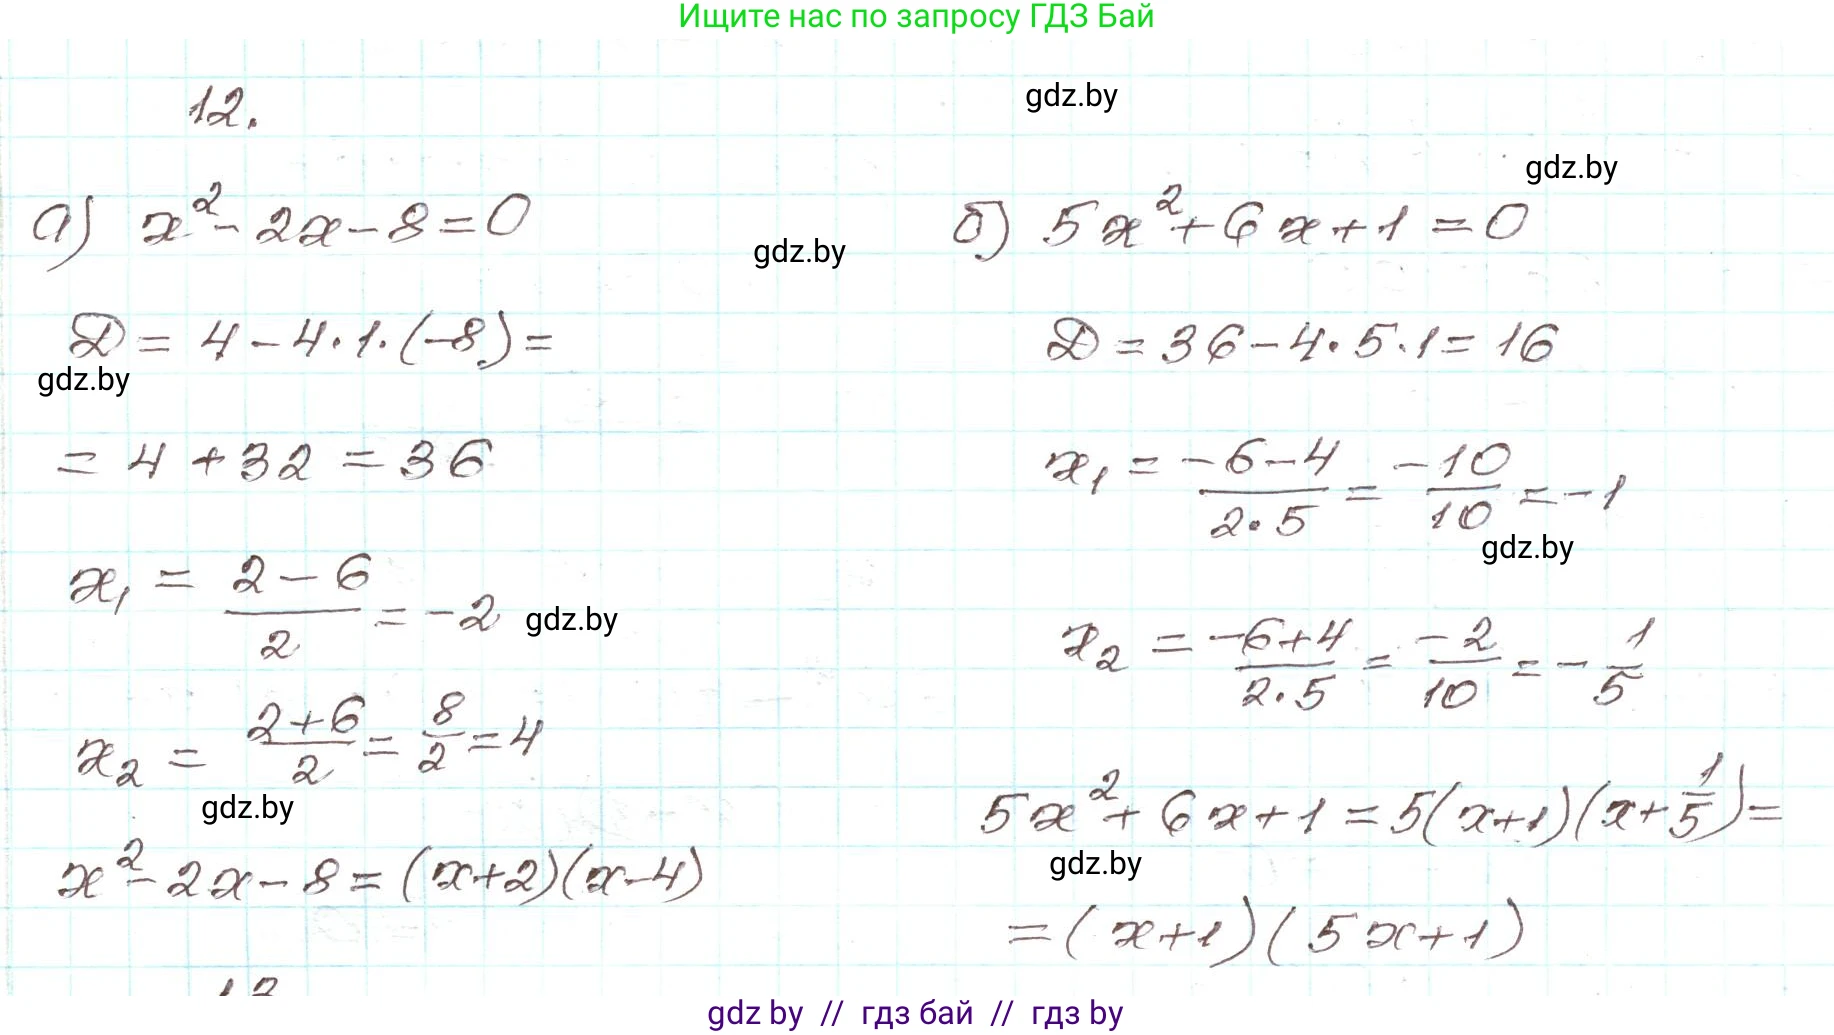 Ищите нас по запросу ГДЗ Бай
12.
gdz.by
gdz.by
а) x² - 2x - 8 = 0
gdz.by
D = 4 - 4·1·(-8) =
gdz.by
= 4 + 32 = 36
x₁ = (2 - 6)/2 = -2
gdz.by
x₂ = (2+6)/2 = 8/2 = 4
gdz.by
x² - 2x - 8 = (x+2)(x-4)
б) 5x² + 6x + 1 = 0
D = 36 - 4·5·1 = 16
x₁ = (-6-4)/(2·5) = -10/10 = -1
gdz.by
x₂ = (-6+4)/(2·5) = -2/10 = -1/5
5x² + 6x + 1 = 5(x+1)(x+1/5) =
gdz.by
= (x+1)(5x+1)
gdz by // гдз бай // гдз by